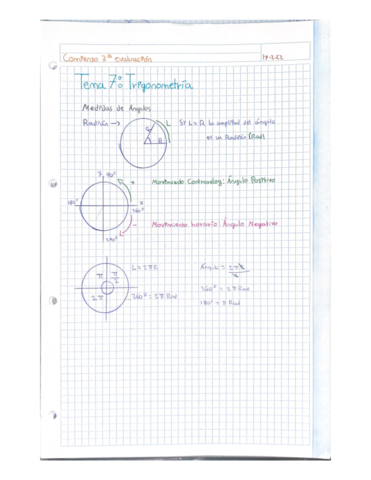 Comienzo 2ª evaluación
Tema 7º: Trigonometría
Medidas de Ángulos
Radián → Si L = R la amplitud del ángulo
es un Radián (Rad)
L
R
y, 90º
180º
x
360º
270º
+ Movimiento Contrareloj: Ángulo Positivo
- Movimiento horario: Ángulo Negativo
L = 2πR
360º = 2π Rad
π
π/2
2π
360º = 2π Rad
180º = π Rad